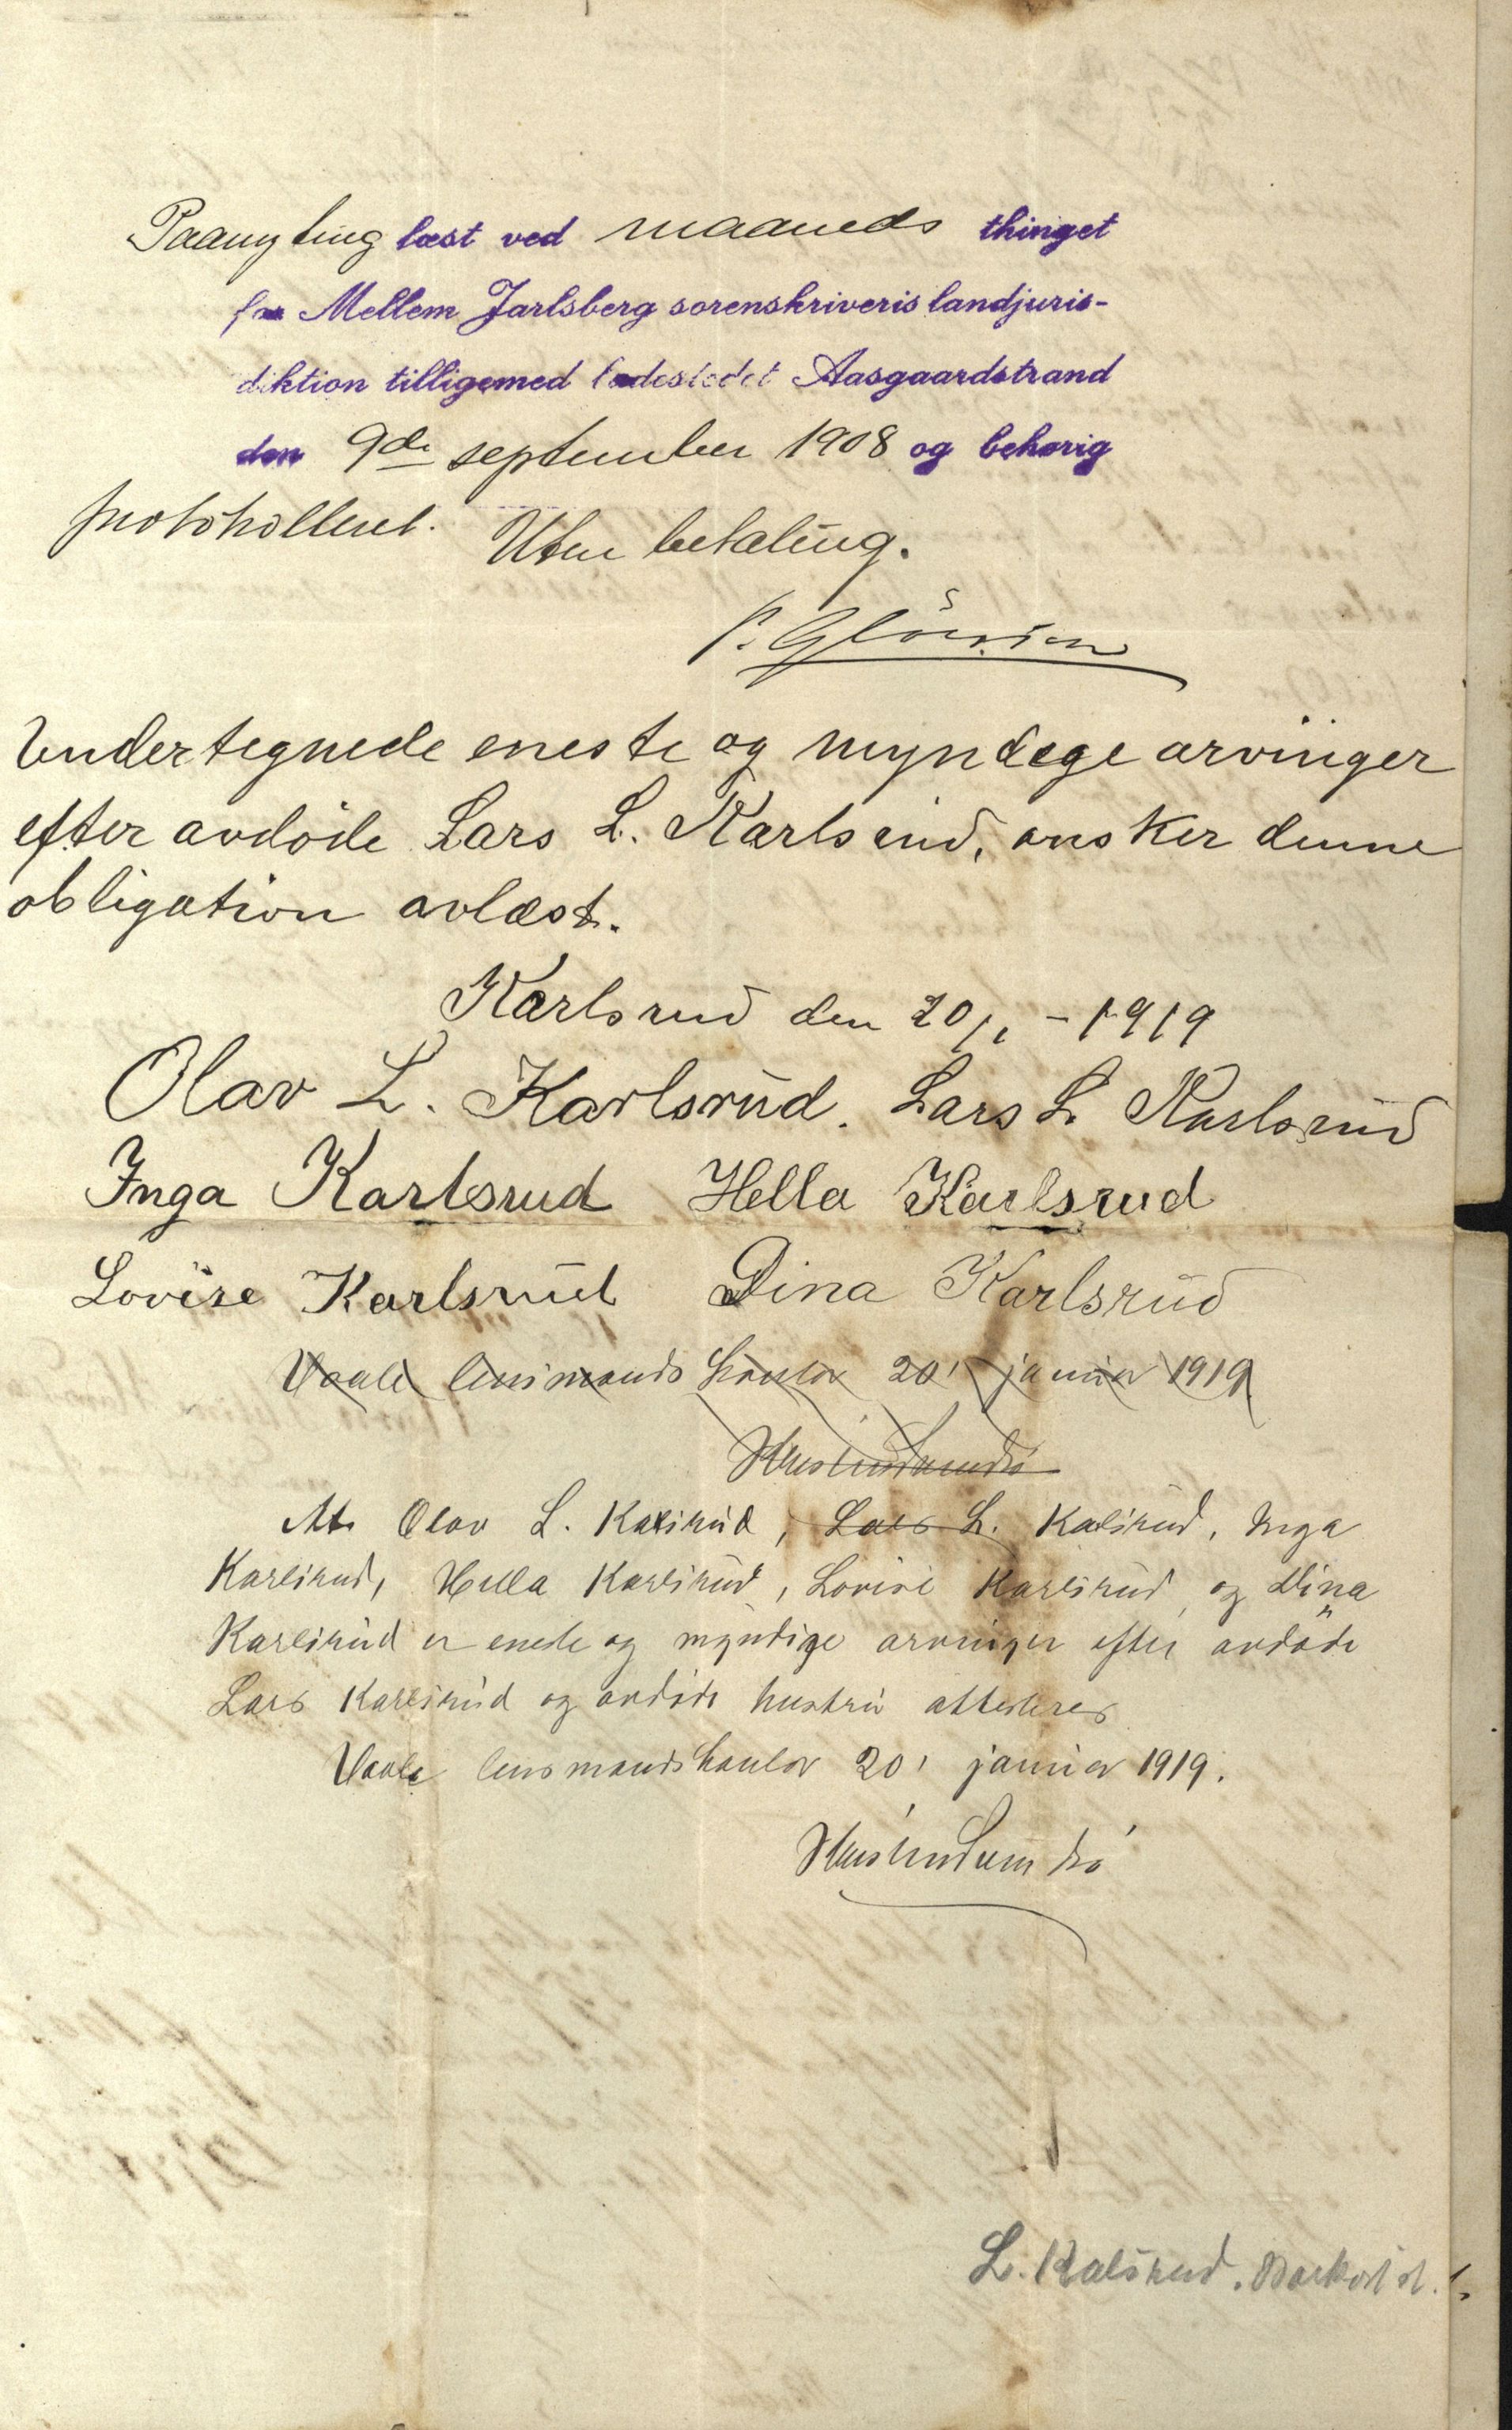 Paany ting læst ved maaneds thinget
for Mellem Jarlsberg sorenskriveris landjuris-
diktion tilligemed ladestedet Aasgaardstrand
den 9de september 1908 og behørig
protokolleret. Uten betaling.
Undertegnede eneste og myndege arvinger
efter avdøde Lars L. Karlsrud, ønsker denne
obligation avlæst.
Karlsrud den 20/1 - 1919
Olav L. Karlsrud. Lars L Karlsrud
Inga Karlsrud Hella Karlsrud
Lovise Karlsrud Dina Karlsrud
Vaale lensmands kontor 20' januar 1919
At Olav L. Karlsrud, Lars L. Kalsrud, Inga
Karlsrud, Hella Karlsrud, Lovise Karlsrud og Dina
Karlsrud er eneste og myndige arvinger efter avdøde
Lars Karlsrud og avdøde hustru attesteres
Vaale lensmandskontor 20' januar 1919.
L. Kalsrud.